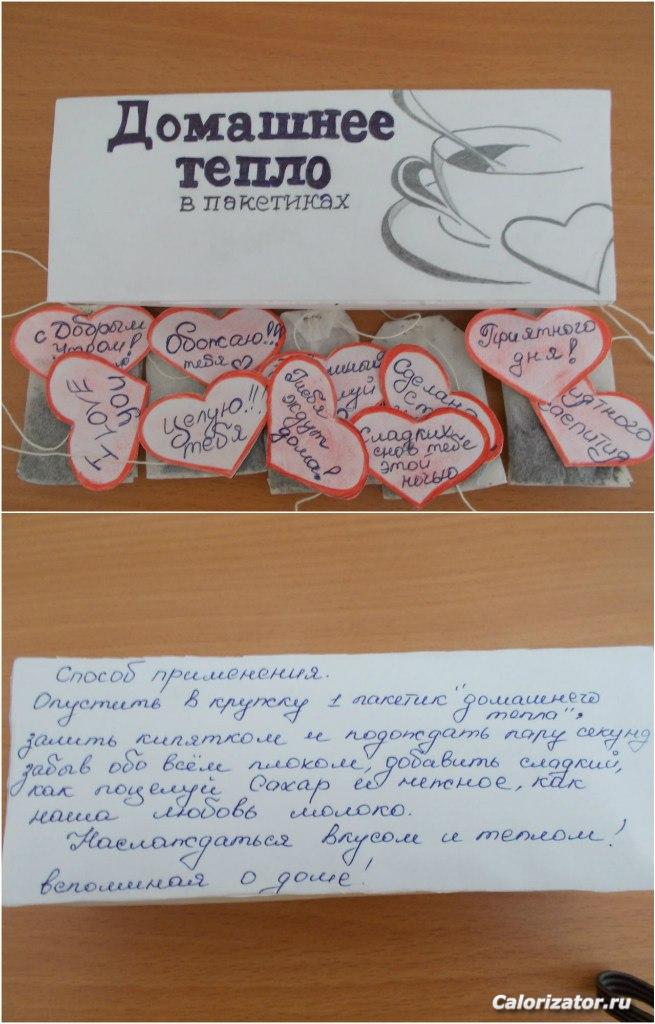 Домашнее
тепло
в пакетиках
с Добрым
утром!
I LOVE
YOU
Обожаю!!!
тебя
Целую!!!
тебя
Тебя
ждут
дома!
Сделано
с
Сладких
снов тебе
этой
ночью
Приятного
дня!
Способ применения.
Опустить в кружку 1 пакетик "домашнего
тепла",
залить кипятком и подождать пару секунд
забыв обо всём плохом, добавить сладкий,
как поцелуй сахар и нежное, как
наша любовь молоко.
Наслаждаться вкусом и теплом!
вспоминая о доме!
Calorizator.ru